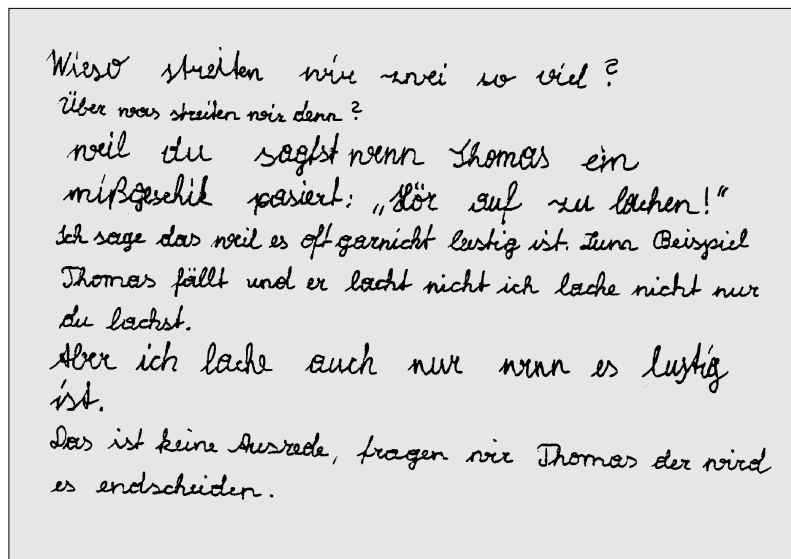 Wieso streiten wir zwei so viel?
Über was streiten wir denn?
weil du sagtst wenn Thomas ein
mißgeschik pasiert: „Hör auf zu lachen!“
Ich sage das weil es oft garnicht lustig ist. Zum Beispiel
Thomas fällt und er lacht nicht ich lache nicht nur
du lachst.
Aber ich lache auch nur wenn es lustig
ist.
Das ist keine Ausrede, fragen wir Thomas der wird
es endscheiden.